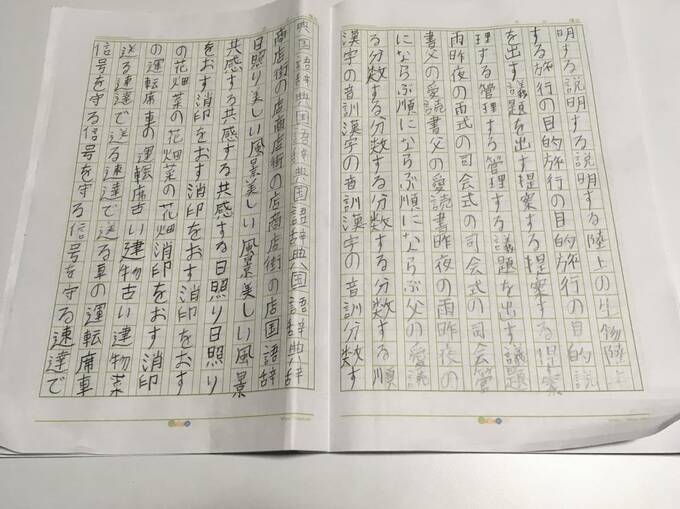 明する説明する説明する陸上の生物陸上
する旅行の目的旅行の目的旅行の目的説
を出す議題を出す提案する提案する提案
理する管理する管理する議題を出す議題
雨昨夜の雨式の司会式の司会式の司会管
書父の愛読書父の愛読書昨夜の雨昨夜の
にならぶ順にならぶ順にならぶ父の愛読
る分数する分数する分数する順
漢字の音訓漢字の音訓漢字の音訓分数す
典国語辞典国語辞典国語辞典
商店街の店商店街の店商店街の店国語辞
日照り美しい風景美しい風景美しい風景
共感する共感する共感する日照り日照り
をおす消印をおす消印をおす
の花畑菜の花畑菜の花畑消印をおす消印
の運転席車の運転席古い建物古い建物菜
送る速達で送る速達で送る車の運転席車
信号を守る信号を守る信号を守る速達で